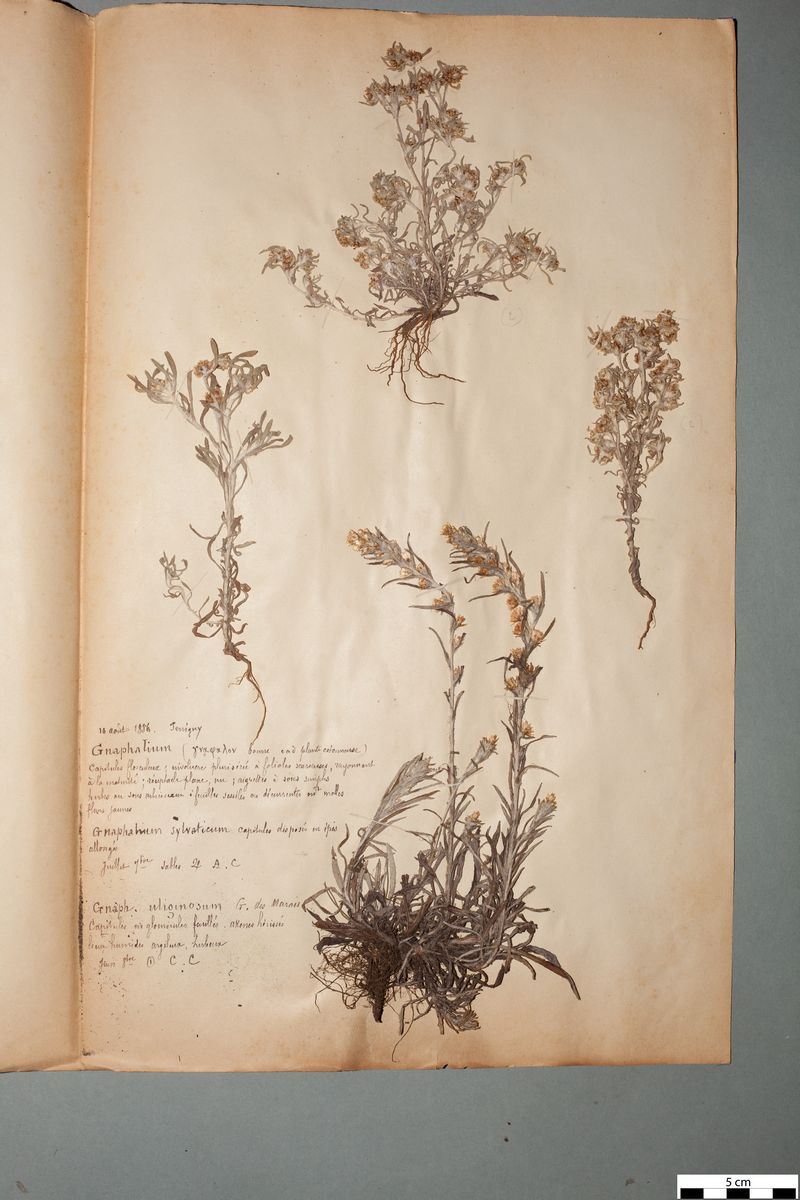 (2)
(2)
16 août 1886. Juvigny
Gnaphalium (γναφαλον bourre càd plante cotonneuse)
Capitules flosculeux ; involucre plurisérié à folioles scarieuses, rayonnant
à la maturité ; réceptacle plane, nu ; aigrettes à soies simples
herbes ou sous arbrisseaux ; feuilles sessiles ou décurrentes molles
fleurs jaunes
Gnaphalium sylvaticum capitules disposés en épis
allongés
Juillet 7bre sables ♃ A. C
Gnaph. uliginosum G. des Marais
Capitules en glomérules feuillés. akenes hérissés
lieux humides argileux, herbeux
Juin 8bre ① C. C
5 cm